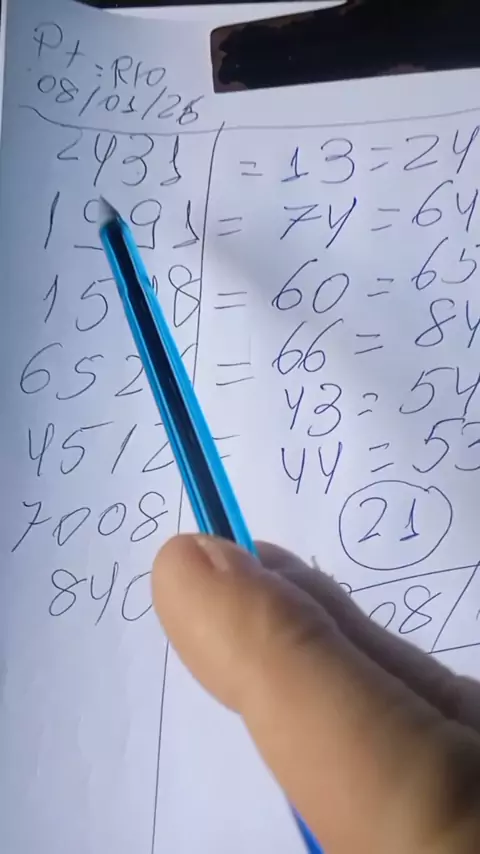 Pt = RIO
08/01/26
2431 = 13 = 24
1991 = 74 = 64
15 8 = 60 = 65
652 = 66 = 84
4512 = 43 = 54
44 = 53
7008
21
840
08/